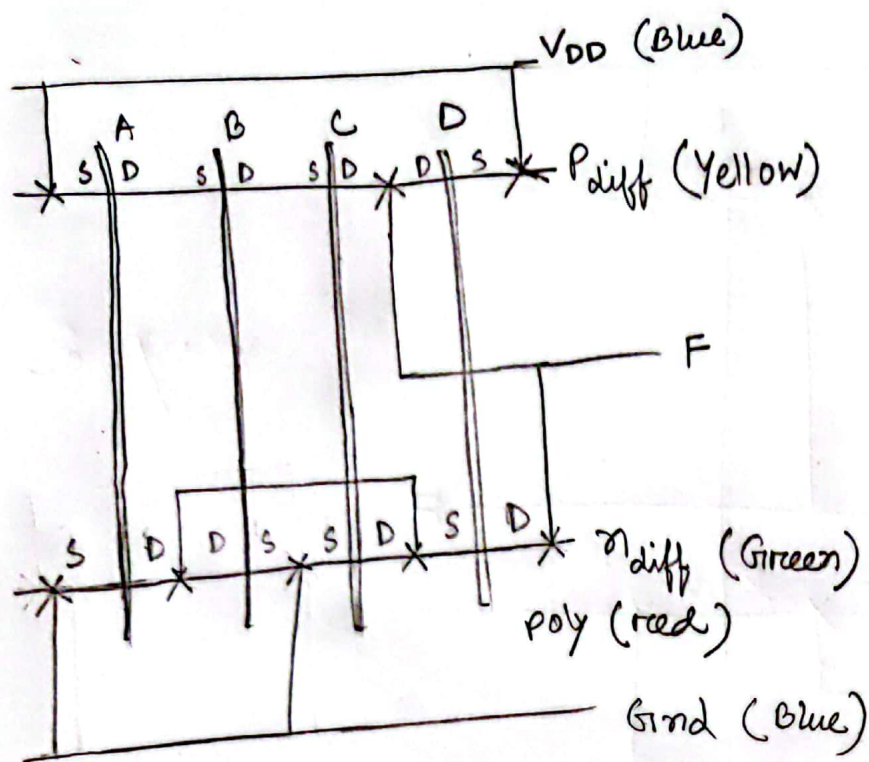 VDD (Blue)
A B C D
S D S D S D D S Pdiff (Yellow)
F
S D D S S D S D ndiff (Green)
poly (red)
Gnd (Blue)